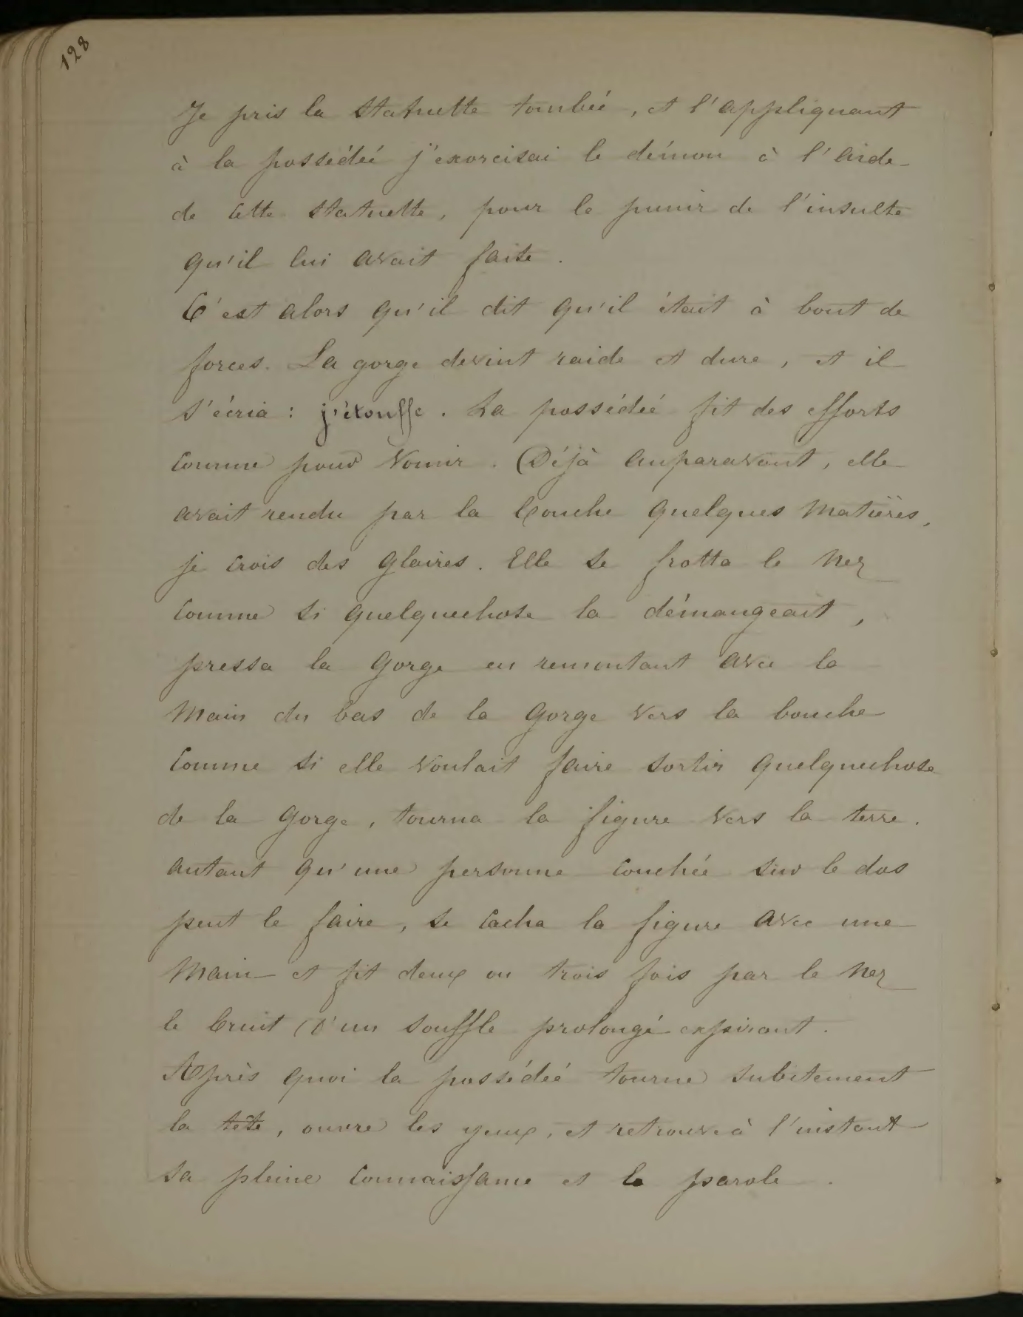 128
Je pris la statuette tombée, et l'appliquant
à la possédée j'exorcisai le démon à l'aide
de cette statuette, pour le punir de l'insulte
qu'il lui avait faite.
C'est alors qu'il dit qu'il était à bout de
forces. La gorge devint raide et dure, et il
s'écria : j'étouffe. La possédée fit des efforts
comme pour vomir. Déjà auparavant, elle
avait rendu par la bouche quelques matières,
je crois des glaires. Elle se frotta le nez
comme si quelquechose la démangeait,
pressa la gorge en remontant avec la
main du bas de la gorge vers la bouche
comme si elle voulait faire sortir quelquechose
de la gorge, tourna la figure vers la terre.
autant qu'une personne couchée sur le dos
peut le faire, se cacha la figure avec une
main et fit deux ou trois fois par le nez
le bruit d'un souffle prolongé expirant.
Après quoi la possédée tourne subitement
la tête, ouvre les yeux, et retrouve à l'instant
sa pleine connaissance et la parole.